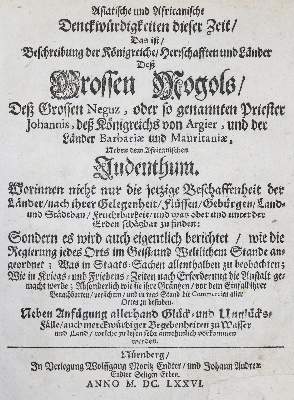 Asiatische und Africanische
Denckwürdigkeiten dieser Zeit/
Das ist/
Beschreibung der Königreiche/ Herrschafften und Länder
Deß
Grossen Mogols/
Deß Grossen Neguz, oder so genannten Priester
Johannis, deß Königreichs von Argier, und der
Länder Barbariæ und Mauritaniæ,
Neben dem Africanischen
Judenthum.
Worinnen nicht nur die jetzige Beschaffenheit der
Länder/ nach ihrer Gelegenheit/ Flüssen/ Gebürgen/ Land-
und Städtbau/ Fruchtbarkeit/ und was ober und unter der
Erden schätzbar zu finden:
Sondern es wird auch eigentlich berichtet/ wie die
Regierung jedes Orts im Geist- und Weltlichem Stande an-
geordnet; Was in Staats-Sachen allenthalben zu beobachten;
Wie in Kriegs- und Friedens-Zeiten nach Erforderung die Anstalt ge-
macht werde; Absonderlich wie sie ihre Gräntzen/ vor dem Einfall ihrer
Benachbarten/ versichern/ und in was Stand die Commercien aller
Orten zu befinden.
Neben Anfügung allerhand Glück- und Unglücks-
Fälle/ auch merckwürdiger Begebenheiten zu Wasser
und Land/ welche zu lesen sehr annehmlich vorkommen
werden.
Nürnberg/
In Verlegung Wolffgang Moritz Endter/ und Johann Andreæ
Endter Seligen Erben.
ANNO M. DC. LXXVI.